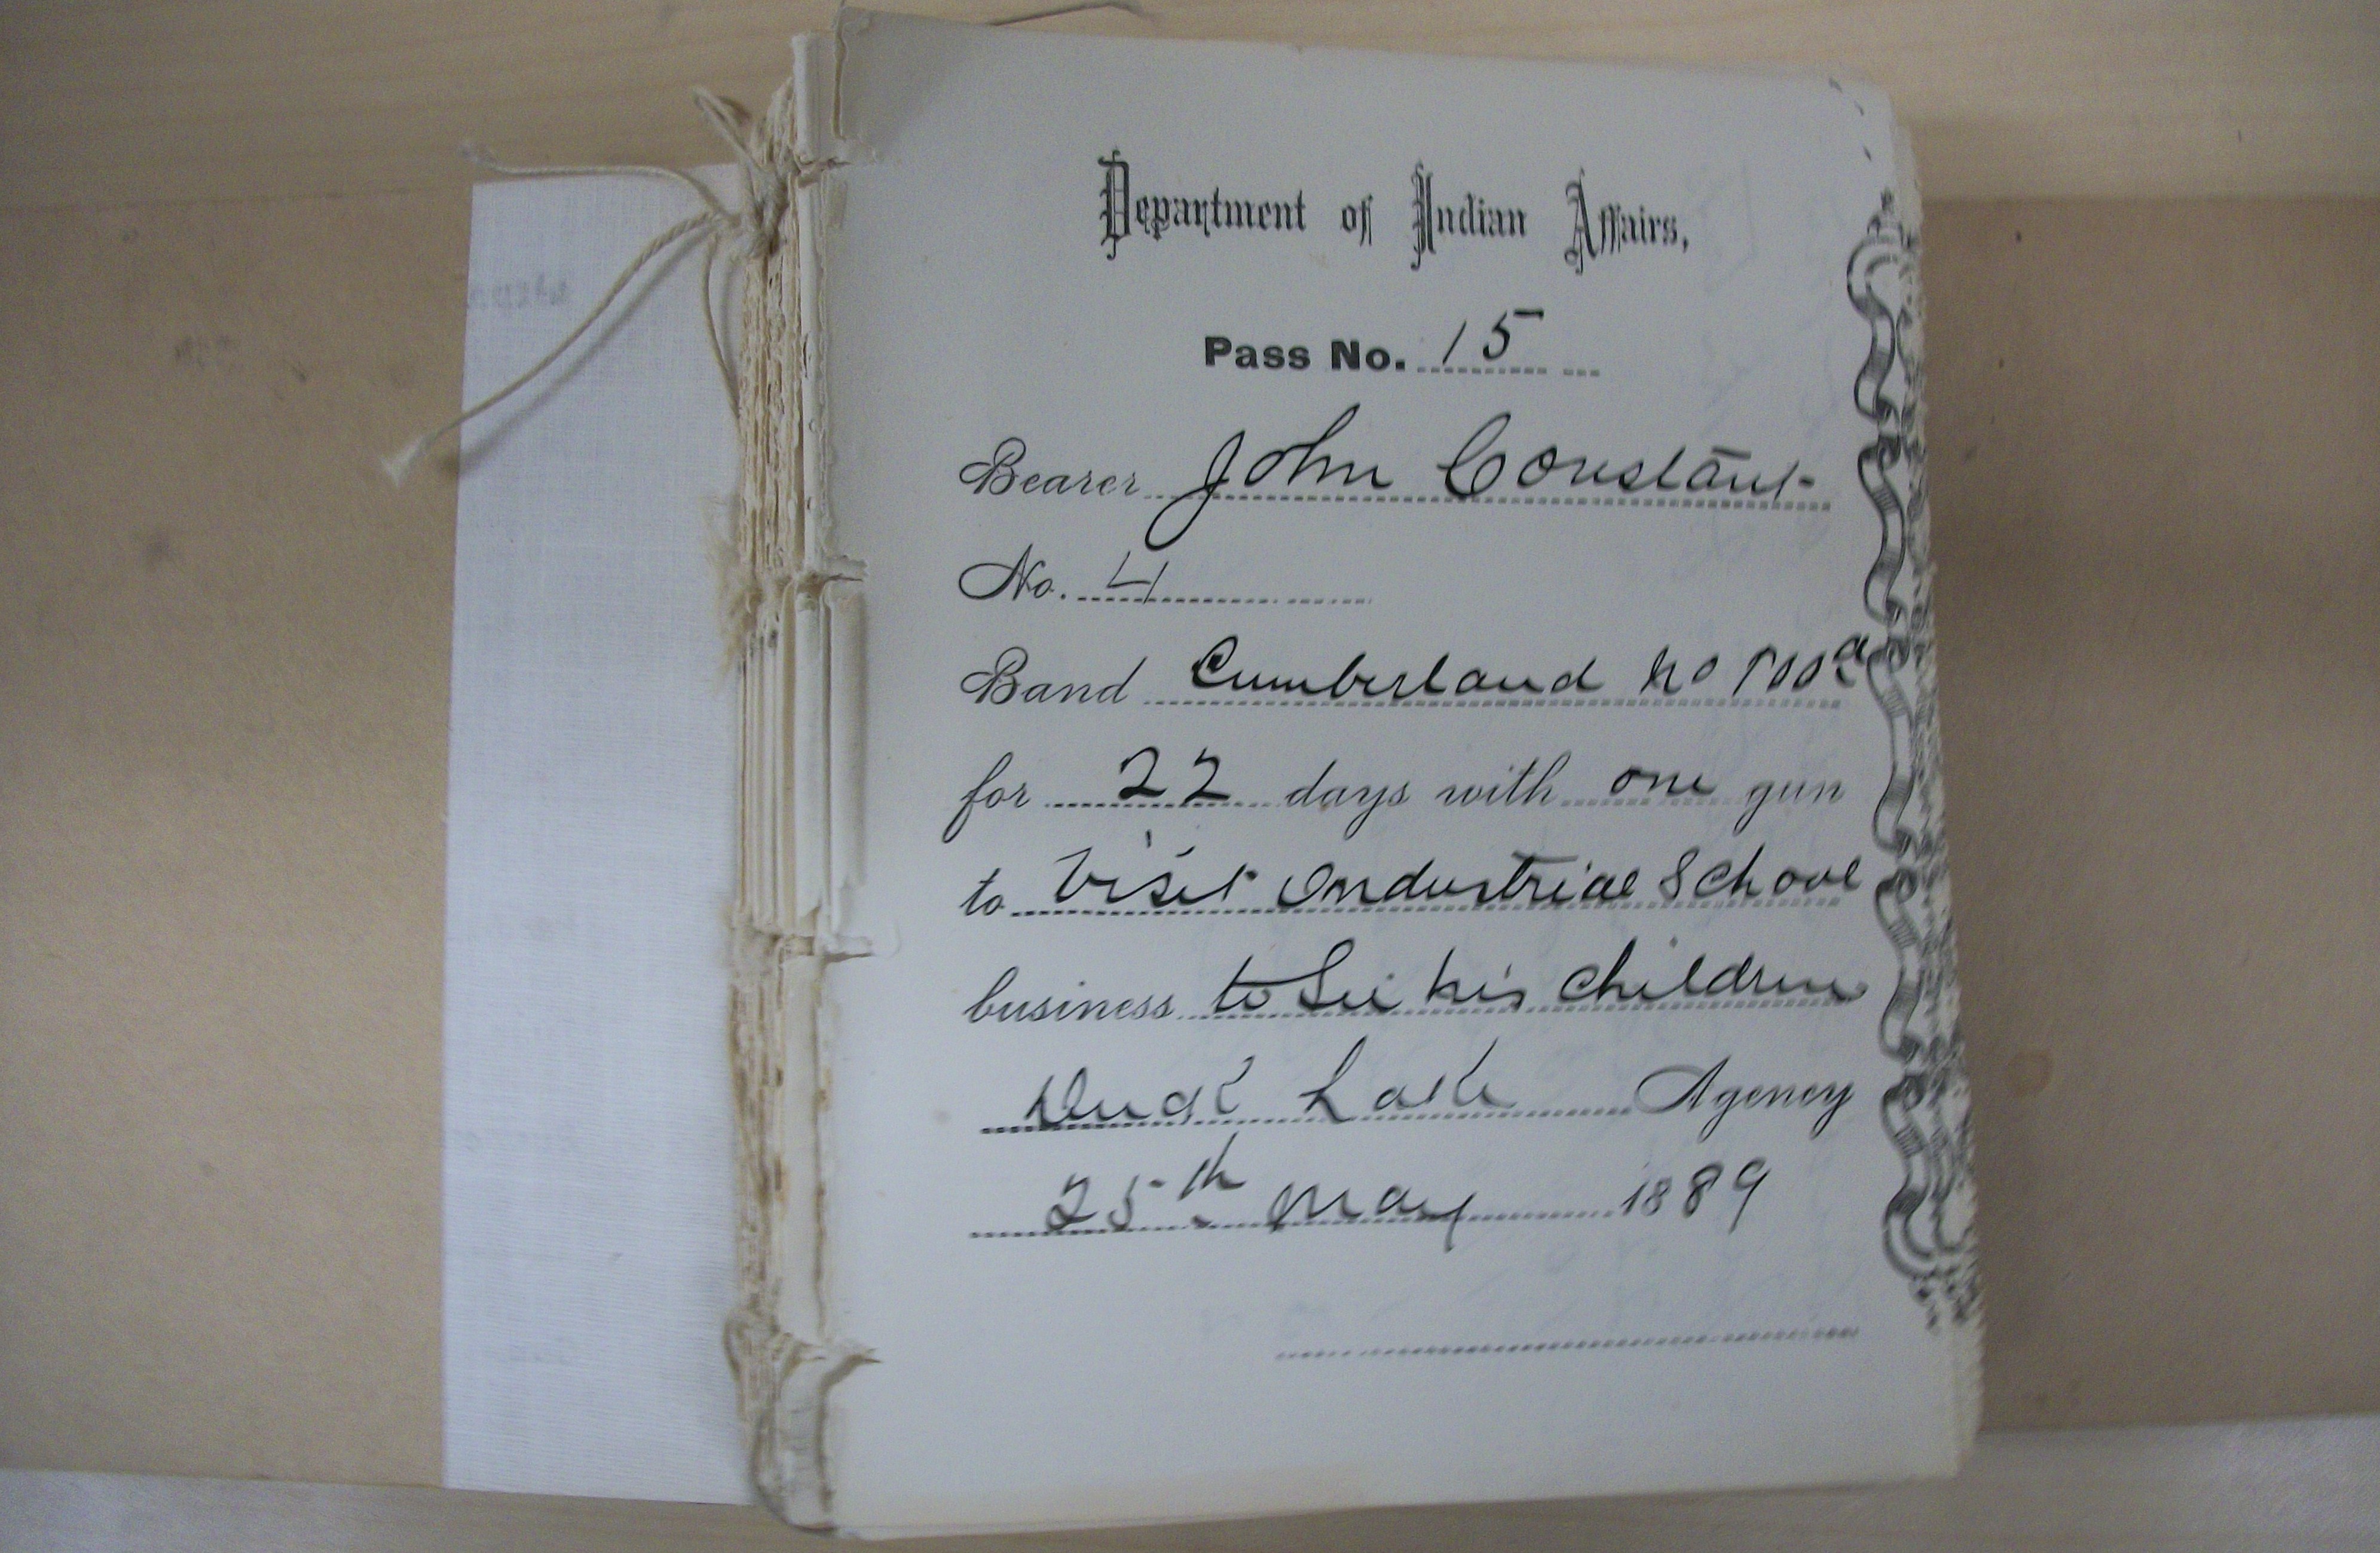 Department of Indian Affairs,
Pass No. 15
Bearer John Constant
No. 4
Band Cumberland no 100a
for 22 days with one gun
to Visit Industrial School
business to See his Children
Duck Lake Agency
25th May 1889